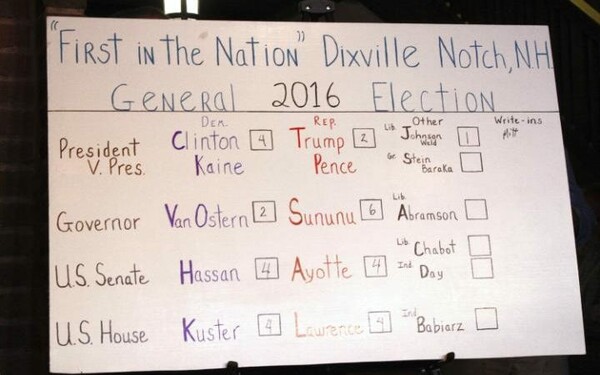 "First in the Nation" Dixville Notch, N.H.
General 2016 Election
Dem. Rep. Other Write-ins
President Clinton 4 Trump 2 Lib. Johnson 1
V. Pres. Kaine Pence Weld
Stein
Baraka
Governor Van Ostern 2 Sununu 6 Lib. Abramson
Lib. Chabot
U.S. Senate Hassan 4 Ayotte 4 Ind. Day
U.S. House Kuster 4 Lawrence 4 Ind. Babiarz